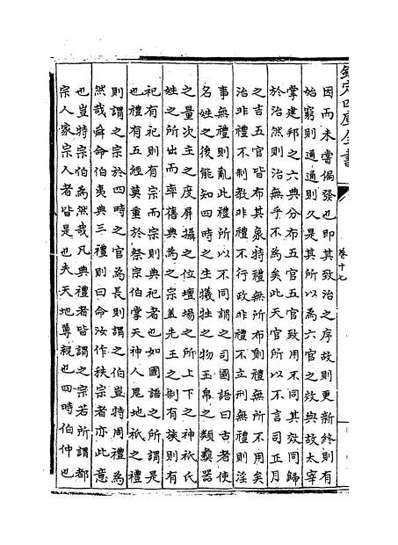 欽定四庫全書
卷十七
因而未嘗偏發也即其致治之序故則更新終則有
始窮則通通則久是其所以為六官之效與故太宰
掌建邦之六典分布五官五官致用不同其效同歸
於治然則治無乎不為矣此天官所以不言司正月
之吉五官皆布其象特禮無所布則禮無所不用矣
治非禮不制教非禮不行政非禮不立刑無禮則淫
事無禮則亂此禮所以不同謂之司國語曰古者使
名姓之後能知四時之生犧牲之物玉帛之類彝器
之量次主之度屏攝之位壇場之所上下之神祇氏
姓之所出而率舊典為之宗蓋先王之制有族則有
祀有祀則有宗而宗則典祀者也如國語之所謂是
也禮有五經莫重於祭宗伯掌天神人鬼地祇之禮
則謂之宗於四時之官為長則謂之伯豈特周禮為
然哉舜命伯夷典三禮則曰命汝作秩宗者亦此意
也豈特宗伯為然哉凡典禮者皆謂之宗若所謂都
宗人家宗人者皆是也夫天地尊親也四時伯仲也